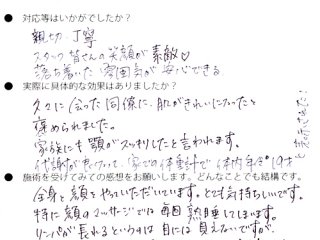 ● 対応等はいかがでしたか?
親切 丁寧
スタッフ皆さんの笑顔が素敵♡
落ち着いた雰囲気が安心できる
● 実際に具体的な効果はありましたか?
久々に会った同僚に、肌がきれいになったと
褒められました。
家族にも顎がスッキリしたと言われます。
代謝が良くなって、家での体重計で体内年令19才
と表示でした!
● 施術を受けてみての感想をお願いします。どんなことでも結構です。
全身と顔をやっていただいています。とても気持ちいいです。
特に顔のマッサージでは毎回熟睡してしまいます。
リンパが流れるというのは目には見えないですが、